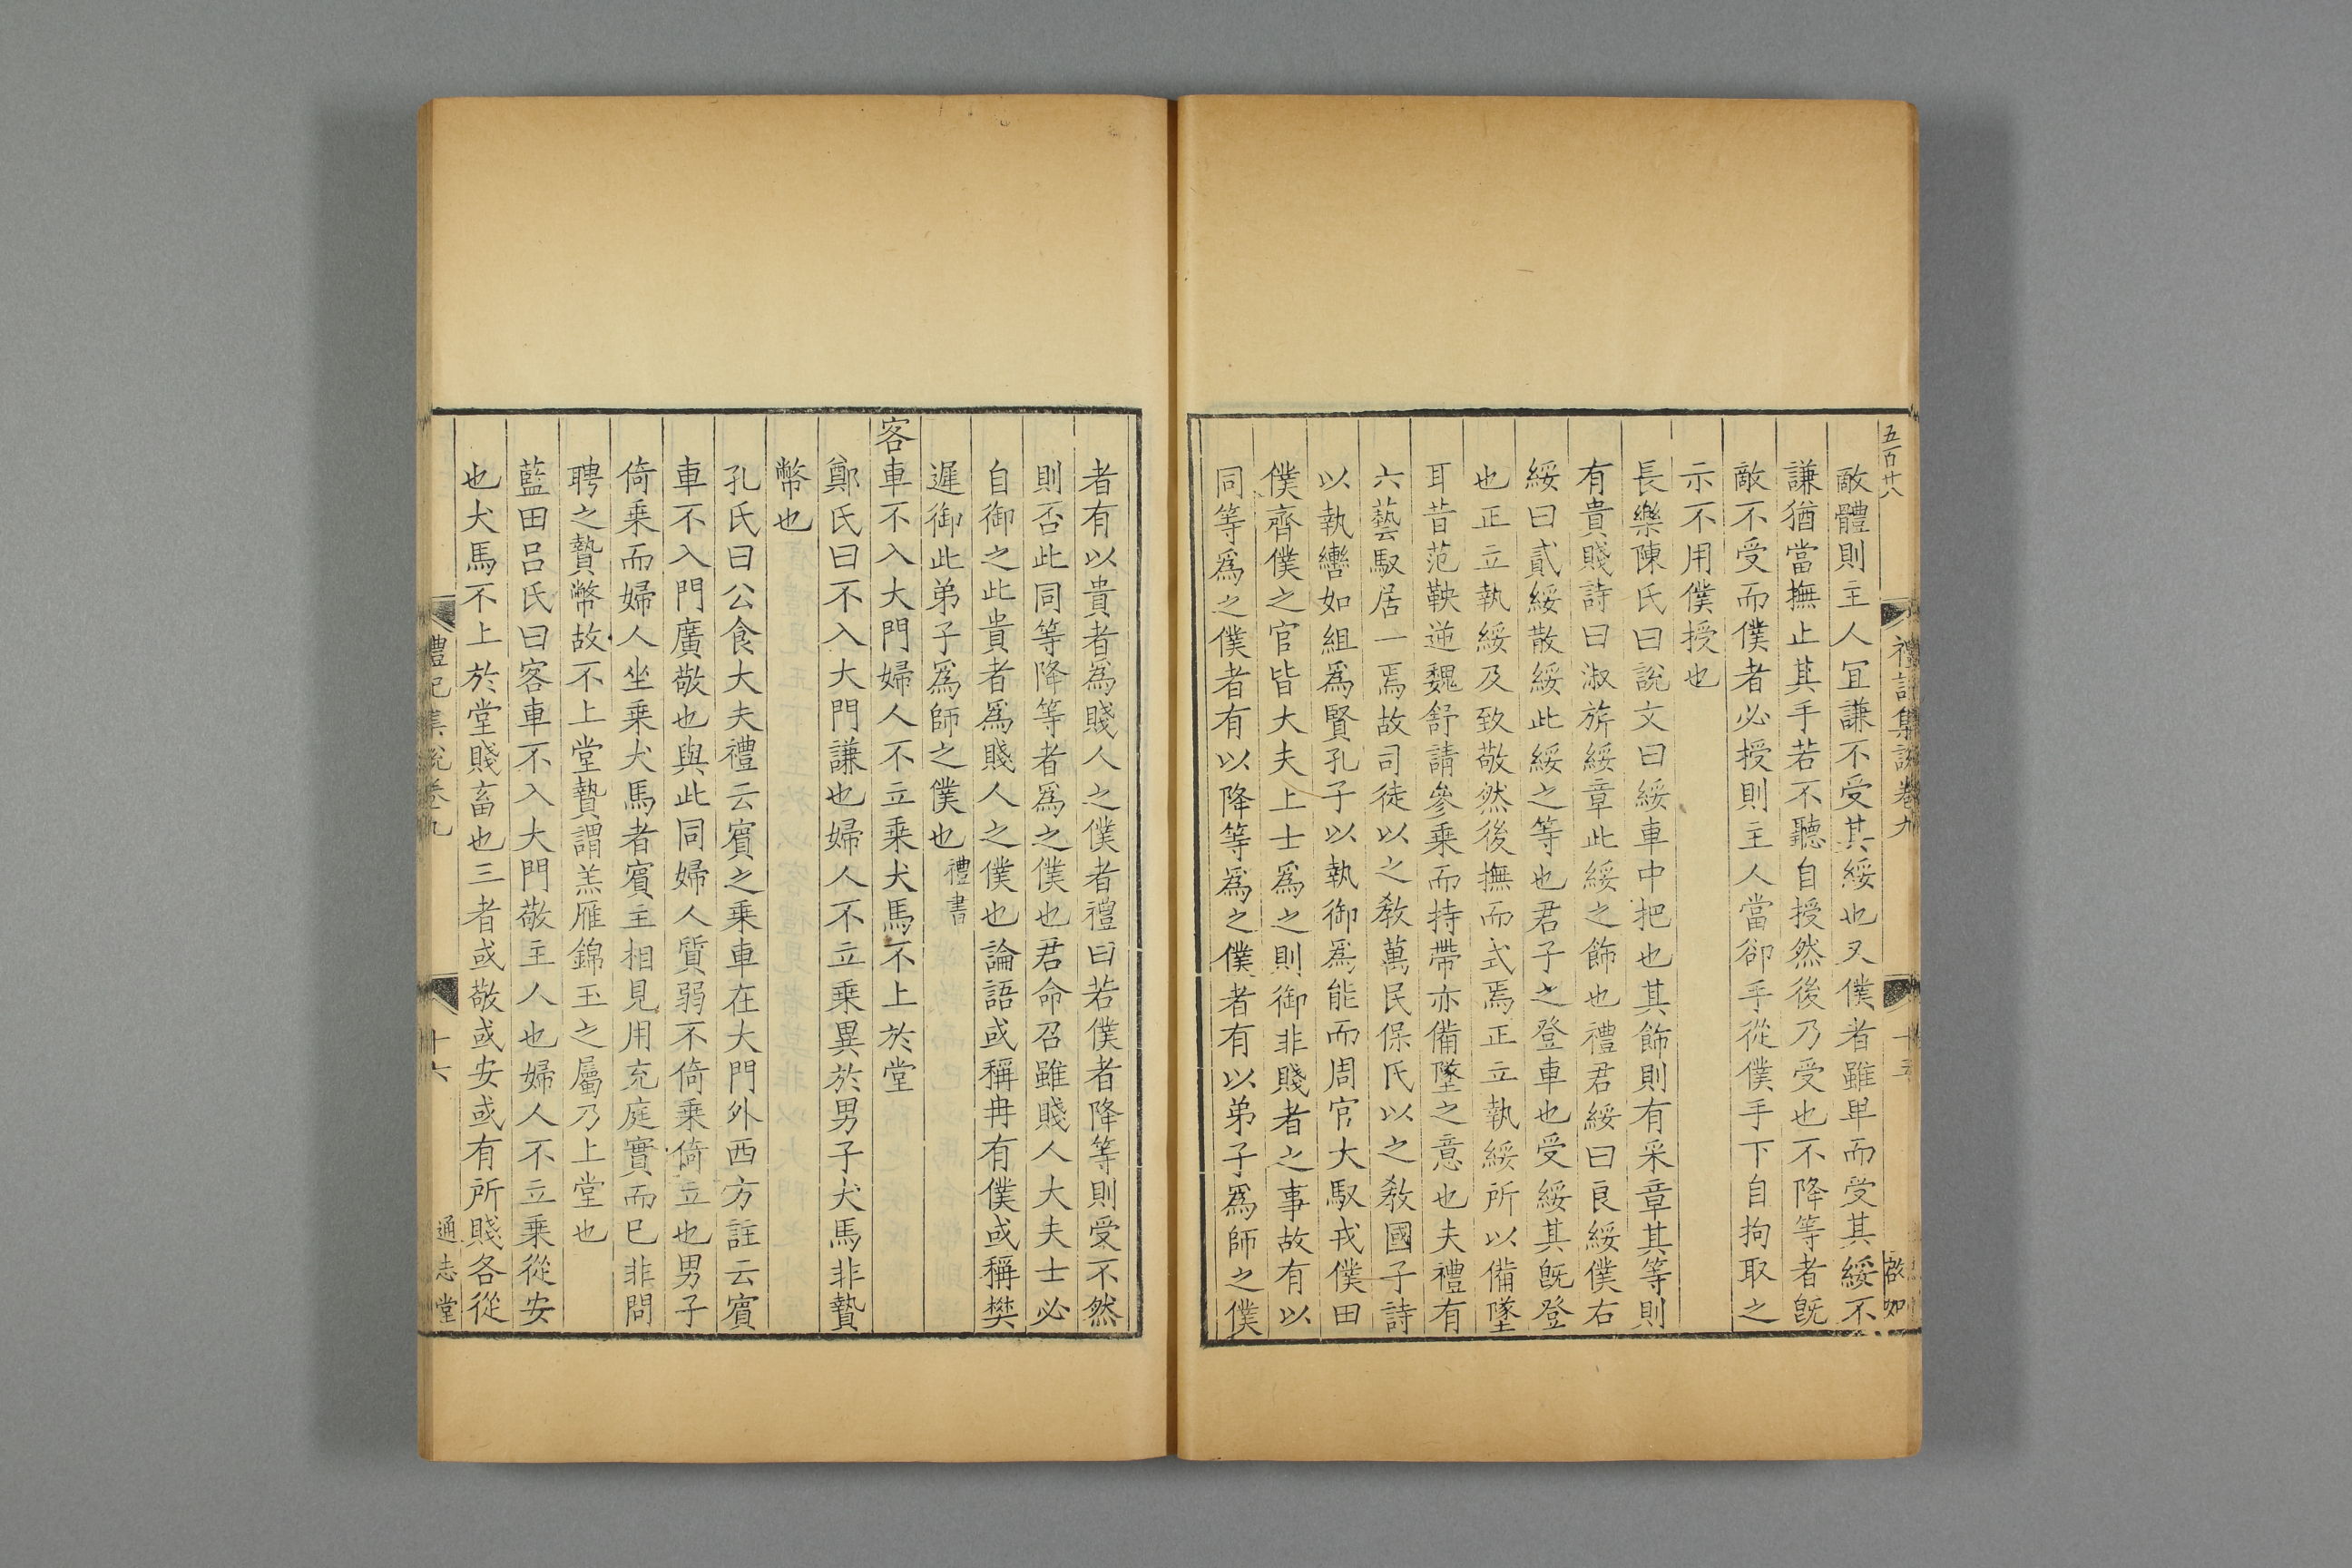 五百廿八
禮記集說卷九
十五
啟如
敵體則主人宜謙不受其綏也又僕者雖卑而受其綏不
謙猶當撫止其手若不聽自授然後乃受也不降等者旣
敵不受而僕者必授則主人當郤手從僕手下自拘取之
示不用僕授也
長樂陳氏曰說文曰綏車中把也其飾則有采章其等則
有貴賤詩曰淑旂綏章此綏之飾也禮君綏曰良綏僕右
綏曰貳綏散綏此綏之等也君子之登車也受綏其旣登
也正立執綏及致敬然後撫而式焉正立執綏所以備墜
耳昔范鞅逆魏舒請參乘而持帶亦備墜之意也夫禮有
六藝馭居一焉故司徒以之敎萬民保氏以之敎國子詩
以執轡如組爲賢孔子以執御爲能而周官大馭戎僕田
僕齊僕之官皆大夫上士爲之則御非賤者之事故有以
同等爲之僕者有以降等爲之僕者有以弟子爲師之僕
者有以貴者爲賤人之僕者禮曰若僕者降等則受不然
則否此同等降等者爲之僕也君命召雖賤人大夫士必
自御之此貴者爲賤人之僕也論語或稱冉有僕或稱樊
遲御此弟子爲師之僕也禮書
客車不入大門婦人不立乘犬馬不上於堂
鄭氏曰不入大門謙也婦人不立乘異於男子犬馬非贄
幣也
孔氏曰公食大夫禮云賓之乘車在大門外西方註云賓
車不入門廣敬也與此同婦人質弱不倚乘倚立也男子
倚乘而婦人坐乘犬馬者賓主相見用充庭實而已非問
聘之贄幣故不上堂贄謂羔雁錦玉之屬乃上堂也
藍田呂氏曰客車不入大門敬主人也婦人不立乘從安
也犬馬不上於堂賤畜也三者或敬或安或有所賤各從
禮記集說卷九
十六
通志堂